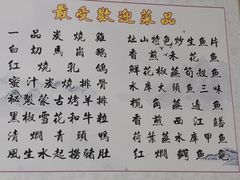 最受歡迎菜品
一品炭燒雞
白切馬崗鵝
紅燒乳鴿
蜜汁炭燒排骨
秘製蒙古烤羊排
黑椒雪花和牛粒
清燜青頭鴨
風生水起撈豬肚
山特色炒生魚片
香煎禾花魚
鮮花椒蒸筍殼魚
水庫大頭魚三味
欖角蒸邊魚
香煎西江鰽
荷葉蒸水庫甲魚
紅燜鱷魚龜